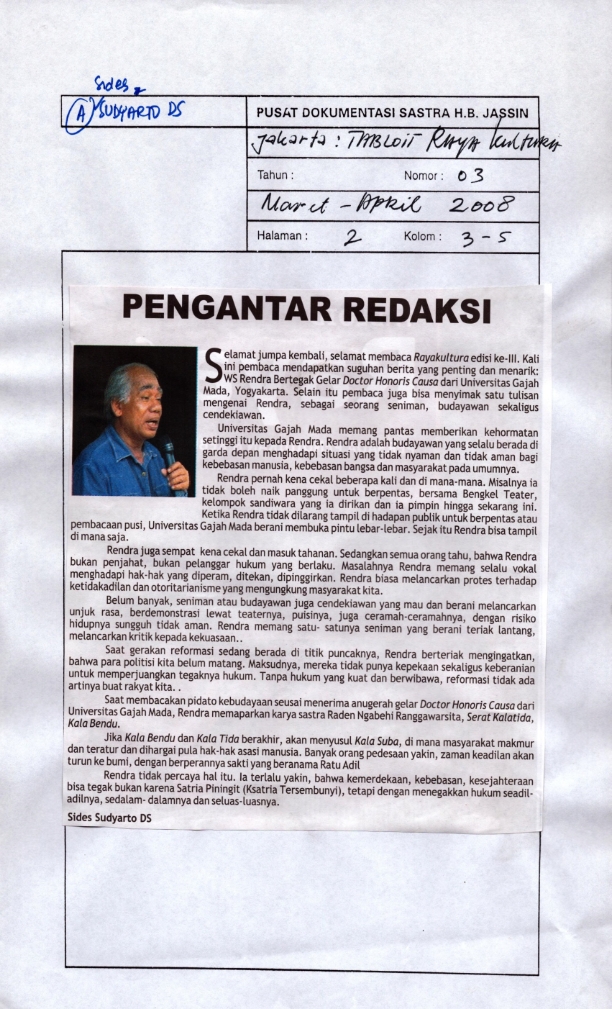 Sides
(A) SUDYARTO DS
PUSAT DOKUMENTASI SASTRA H.B. JASSIN
Jakarta : TABLOIT RAYA KULTURA
Tahun : Nomor : 03
Maret - April 2008
Halaman : 2 Kolom : 3 - 5
PENGANTAR REDAKSI
Selamat jumpa kembali, selamat membaca Rayakultura edisi ke-III. Kali
ini pembaca mendapatkan suguhan berita yang penting dan menarik:
WS Rendra Bertegak Gelar Doctor Honoris Causa dari Universitas Gajah
Mada, Yogyakarta. Selain itu pembaca juga bisa menyimak satu tulisan
mengenai Rendra, sebagai seorang seniman, budayawan sekaligus
cendekiawan.
Universitas Gajah Mada memang pantas memberikan kehormatan
setinggi itu kepada Rendra. Rendra adalah budayawan yang selalu berada di
garda depan menghadapi situasi yang tidak nyaman dan tidak aman bagi
kebebasan manusia, kebebasan bangsa dan masyarakat pada umumnya.
Rendra pernah kena cekal beberapa kali dan di mana-mana. Misalnya ia
tidak boleh naik panggung untuk berpentas, bersama Bengkel Teater,
kelompok sandiwara yang ia dirikan dan ia pimpin hingga sekarang ini.
Ketika Rendra tidak dilarang tampil di hadapan publik untuk berpentas atau
pembacaan pusi, Universitas Gajah Mada berani membuka pintu lebar-lebar. Sejak itu Rendra bisa tampil
di mana saja.
Rendra juga sempat kena cekal dan masuk tahanan. Sedangkan semua orang tahu, bahwa Rendra
bukan penjahat, bukan pelanggar hukum yang berlaku. Masalahnya Rendra memang selalu vokal
menghadapi hak-hak yang diperam, ditekan, dipinggirkan. Rendra biasa melancarkan protes terhadap
ketidakdilan dan otoritarianisme yang mengungkung masyarakat kita.
Belum banyak, seniman atau budayawan juga cendekiawan yang mau dan berani melancarkan
unjuk rasa, berdemonstrasi lewat teaternya, puisinya, juga ceramah-ceramahnya, dengan risiko
hidupnya sungguh tidak aman. Rendra memang satu- satunya seniman yang berani teriak lantang,
melancarkan kritik kepada kekuasaan..
Saat gerakan reformasi sedang berada di titik puncaknya, Rendra berteriak mengingatkan,
bahwa para politisi kita belum matang. Maksudnya, mereka tidak punya kepekaan sekaligus keberanian
untuk memperjuangkan tegaknya hukum. Tanpa hukum yang kuat dan berwibawa, reformasi tidak ada
artinya buat rakyat kita. .
Saat membacakan pidato kebudayaan seusai menerima anugerah gelar Doctor Honoris Causa dari
Universitas Gajah Mada, Rendra memaparkan karya sastra Raden Ngabehi Ranggawarsita, Serat Kalatida,
Kala Bendu.
Jika Kala Bendu dan Kala Tida berakhir, akan menyusul Kala Suba, di mana masyarakat makmur
dan teratur dan dihargai pula hak-hak asasi manusia. Banyak orang pedesaan yakin, zaman keadilan akan
turun ke bumi, dengan berperannya sakti yang beranama Ratu Adil
Rendra tidak percaya hal itu. Ia terlalu yakin, bahwa kemerdekaan, kebebasan, kesejahteraan
bisa tegak bukan karena Satria Piningit (Ksatria Tersembunyi), tetapi dengan menegakkan hukum seadil-
adilnya, sedalam- dalamnya dan seluas-luasnya.
Sides Sudyarto DS